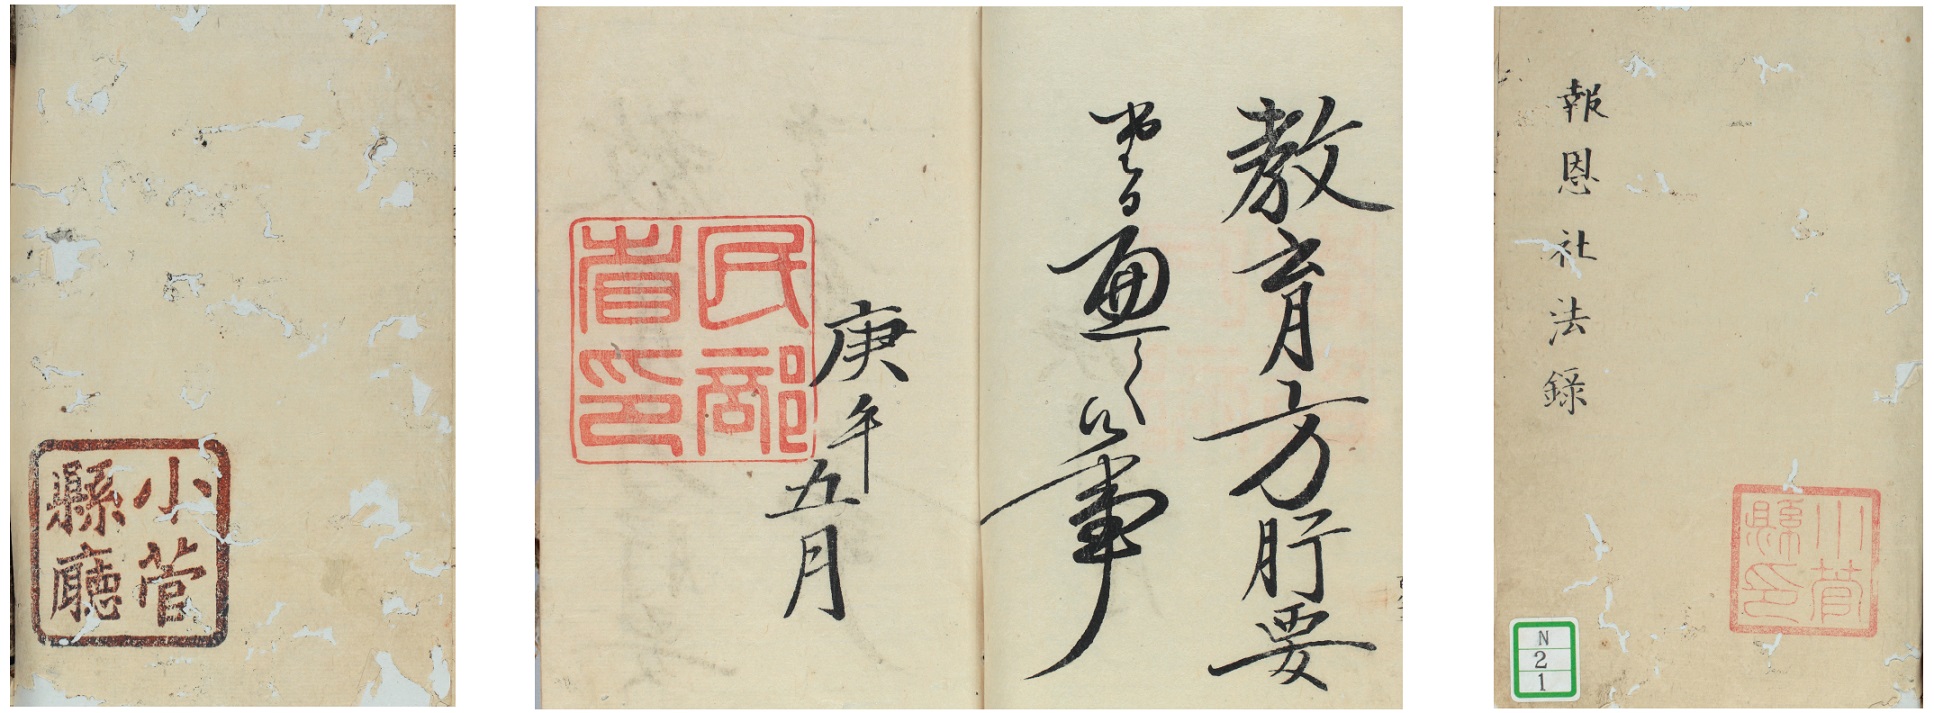 報恩社法錄
小菅
縣印
N
2
1
教育方肝要
事
庚午五月
民部
省印
小菅
縣廳